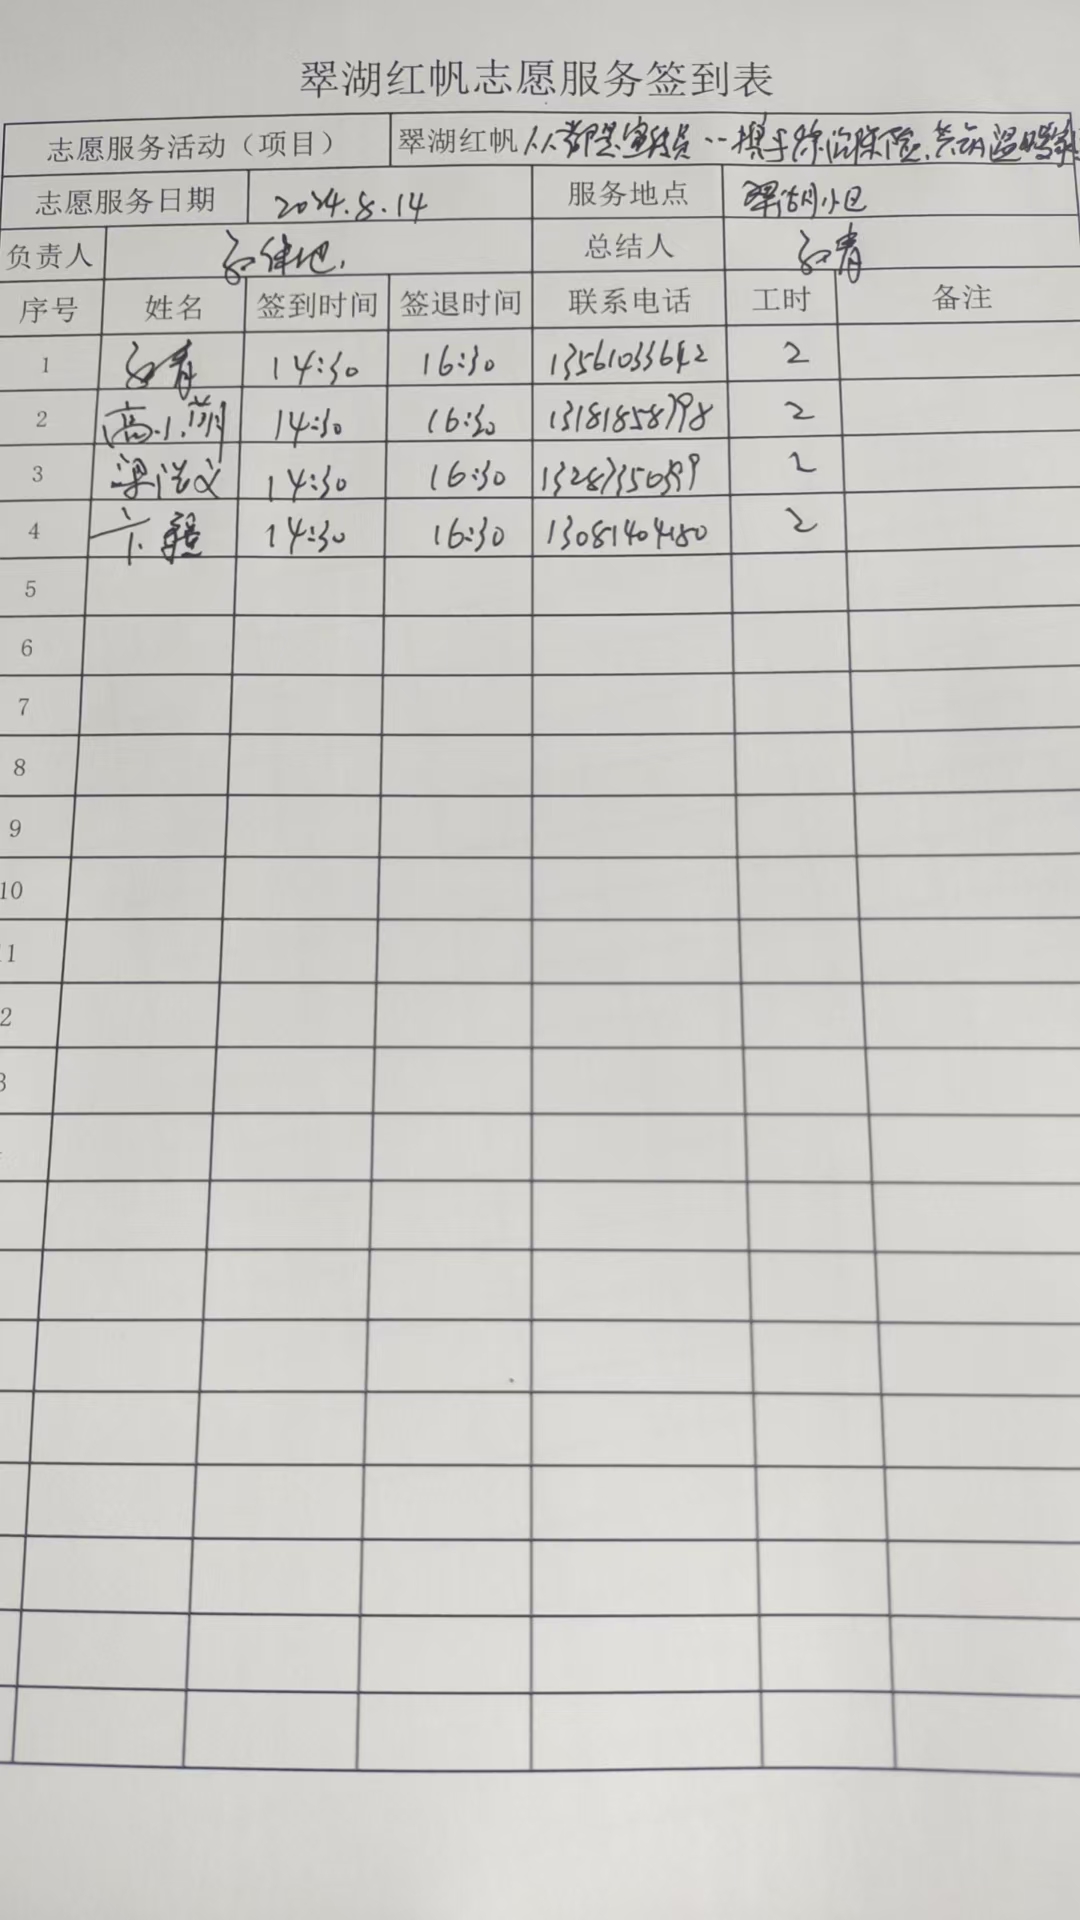 翠湖红帆志愿服务签到表
志愿服务活动（项目） 翠湖红帆人人都是宣传员··携手除治保险、共萌温暖家
志愿服务日期 2024.8.14 服务地点 翠湖小区
负责人 总结人 青
序号 姓名 签到时间 签退时间 联系电话 工时 备注
1 青 14:30 16:30 13561033642 2
2 高小萌 14:30 16:30 13181858798 2
3 梁洪文 14:30 16:30 13287350599 2
4 卞 14:30 16:30 13081404180 2
5
6
7
8
9
10
11
2
3